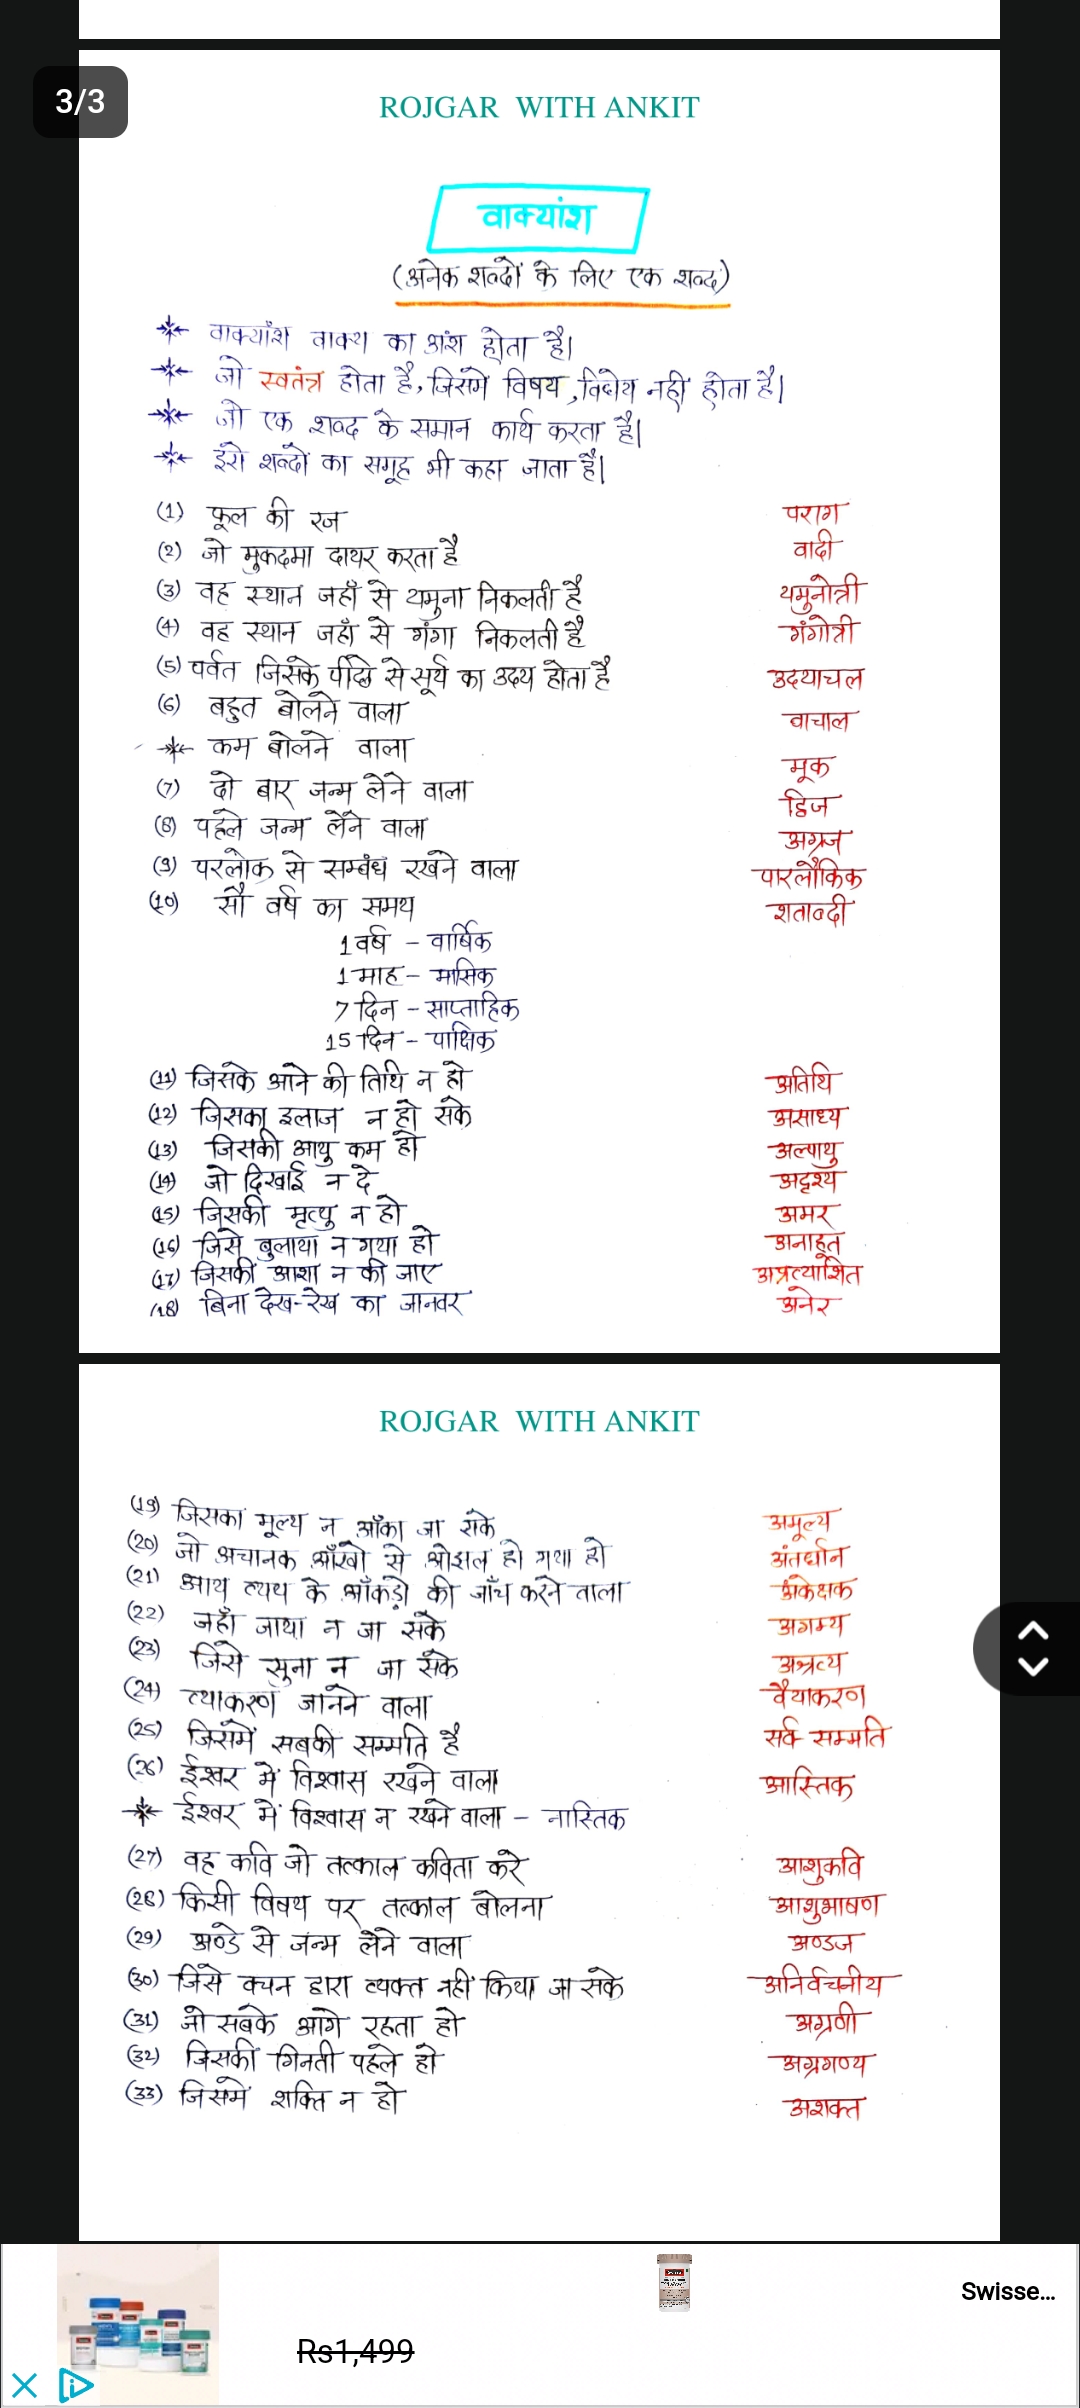 3/3
ROJGAR WITH ANKIT
वाक्यांश
(अनेक शब्दों के लिए एक शब्द)
वाक्यांश वाक्य का अंश होता है।
जो स्वतंत्र होता है, जिसमे विषय, विधेय नही होता है।
जो एक शब्द के समान कार्य करता है।
इसे शब्दों का समूह भी कहा जाता है।
(1) फूल की रज पराग
(2) जो मुकदमा दायर करता है वादी
(3) वह स्थान जहाँ से यमुना निकलती है यमुनोत्री
(4) वह स्थान जहाँ से गंगा निकलती है गंगोत्री
(5) पर्वत जिसके पीछे से सूर्य का उदय होता है उदयाचल
(6) बहुत बोलने वाला वाचाल
कम बोलने वाला मूक
(7) दो बार जन्म लेने वाला द्विज
(8) पहले जन्म लेने वाला अग्रज
(9) परलोक से सम्बंध रखने वाला पारलौकिक
(10) सौ वर्ष का समय शताब्दी
1 वर्ष - वार्षिक
1 माह - मासिक
7 दिन - साप्ताहिक
15 दिन - पाक्षिक
(11) जिसके आने की तिथि न हो अतिथि
(12) जिसका इलाज न हो सके असाध्य
(13) जिसकी आयु कम हो अल्पायु
(14) जो दिखाई न दे अदृश्य
(15) जिसकी मृत्यु न हो अमर
(16) जिसे बुलाया न गया हो अनाहूत
(17) जिसकी आशा न की जाए अप्रत्याशित
(18) बिना देख-रेख का जानवर अनेर
ROJGAR WITH ANKIT
(19) जिसका मूल्य न आँका जा सके अमूल्य
(20) जो अचानक आँखो से ओझल हो गया हो अंतर्धान
(21) आय व्यय के आँकड़ो की जाँच करने वाला अंकेक्षक
(22) जहाँ जाया न जा सके अगम्य
(23) जिसे सुना न जा सके अश्रव्य
(24) व्याकरण जानने वाला वैयाकरण
(25) जिसमें सबकी सम्मति है सर्व सम्मति
(26) ईश्वर में विश्वास रखने वाला आस्तिक
ईश्वर में विश्वास न रखने वाला - नास्तिक
(27) वह कवि जो तत्काल कविता करे आशुकवि
(28) किसी विषय पर तत्काल बोलना आशुभाषण
(29) अण्डे से जन्म लेने वाला अण्डज
(30) जिसे वचन द्वारा व्यक्त नहीं किया जा सके अनिर्वचनीय
(31) जो सबके आगे रहता हो अग्रणी
(32) जिसकी गिनती पहले हो अग्रगण्य
(33) जिसमे शक्ति न हो अशक्त
Swisse...
Rs1,499